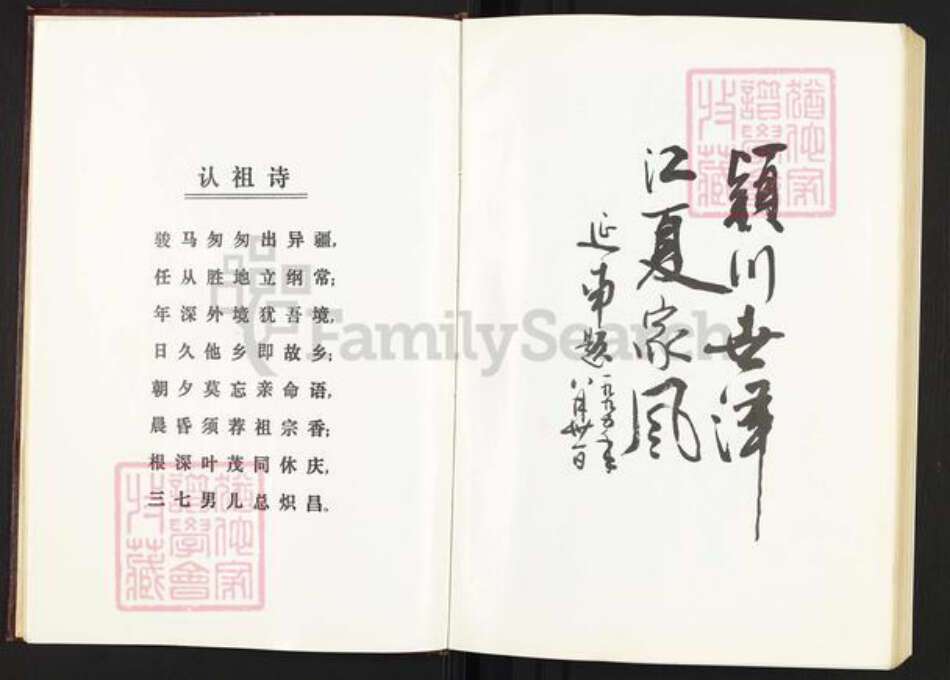 认祖诗
骏马匆匆出异疆，
任从胜地立纲常；
年深外境犹吾境，
日久他乡即故乡；
朝夕莫忘亲命语，
晨昏须荐祖宗香；
根深叶茂同休庆，
三七男儿总炽昌。
颖川世泽
江夏家风
延申题
一九九五年
八月卅一日
猶他家
譜學會
收藏
猶他家
譜學會
收藏
FamilySearch